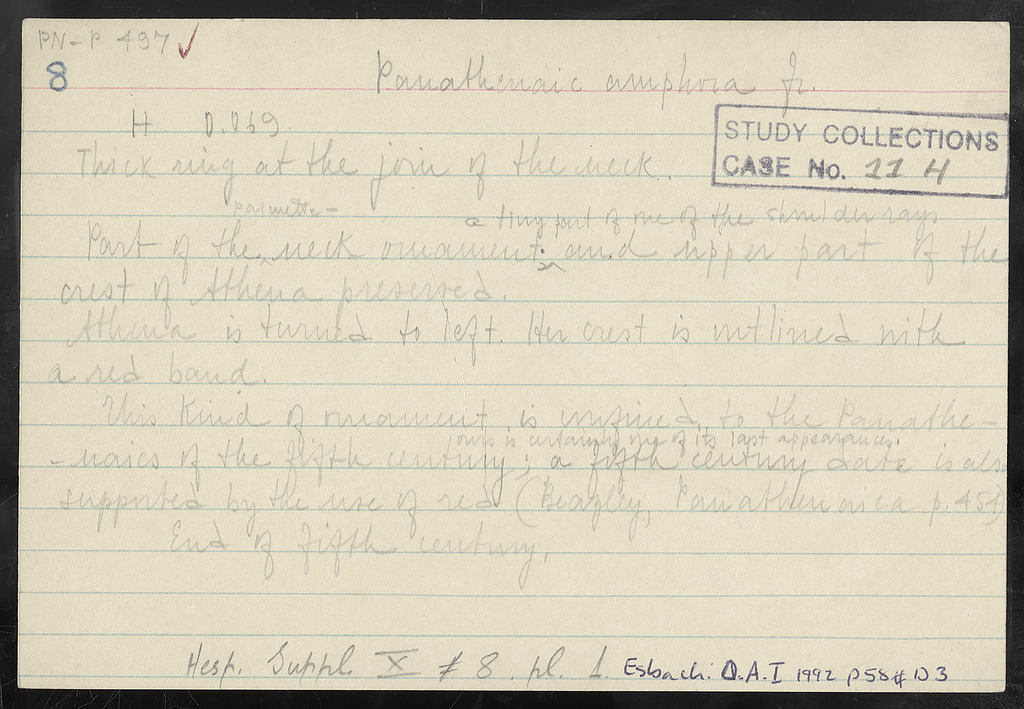 PN-P 497 ✓
8
Panathenaic amphora fr.
H 0.069.
STUDY COLLECTIONS
CASE No. 11 4
Thick ring at the join of the neck.
palmette-
a tiny part of one of the shoulder rays
Part of the neck ornament: and upper part of the
crest of Athena preserved.
Athena is turned to left. Her crest is outlined with
a red band.
This kind of ornament is confined to the Panathe-
ours is certainly one of its last appearances.
-naics of the fifth century; a fifth century date is also
supported by the use of red (Beazley, Panathenaica p. 451)
End of fifth century.
Hesp. Suppl. X # 8. pl. 1. Esbach. D.A.I 1992 p58# D3